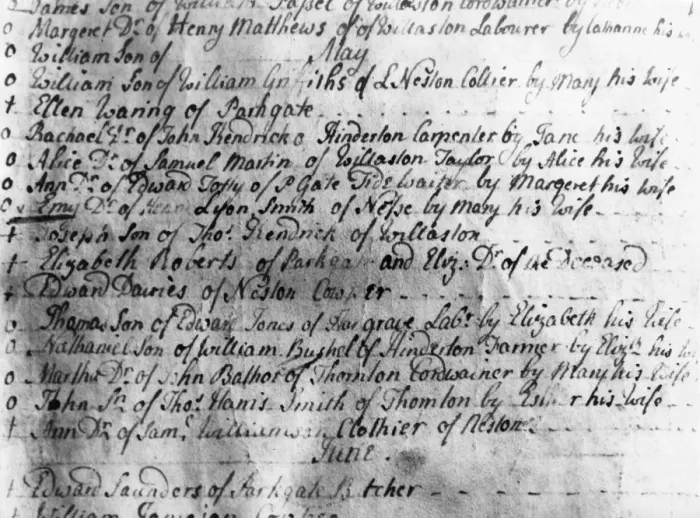 James Son of William of Willaston Cordwainer by
o Margeret Dr. of Henry Matthews of Willaston Labourer by Cathanne his
o William Son of May
o William Son of William Griffiths of L Neston Collier by Mary his Wife
+ Ellen Waring of Parkgate
o Rachael Dr. of John Kendrick o Hinderton Carpenter by Jane his wife
o Alice Dr. of Samuel Martin of Willaston Taylor by Alice his Wife
o Ann Dr. of Edward of P Gate Tide waiter by Margeret his Wife
o Emy Dr. of Henr Lyon Smith of Nesse by Mary his Wife
+ Joseph Son of Thos. Kendrick of Willaston
+ Elizabeth Roberts of Parkgate and Eliz: Dr. of the Deceased
+ Edward Davies of Neston Cowper
o Thomas Son of Edward Jones of Hargrave Labr. by Elizabeth his Wife
o Nathaniel Son of William Bushel of Hinderton Farmer by Elizth his
o Martha Dr. of John Balhor of Thornton Cordwainer by Mary his Wife
o John Sn. of Thos. Harris Smith of Thornton by Esther his Wife
+ Ann Dr. of Saml. Williamson Clothier of Neston
June.
+ Edward Saunders of Parkgate Butcher
+ William Jameson Cowper